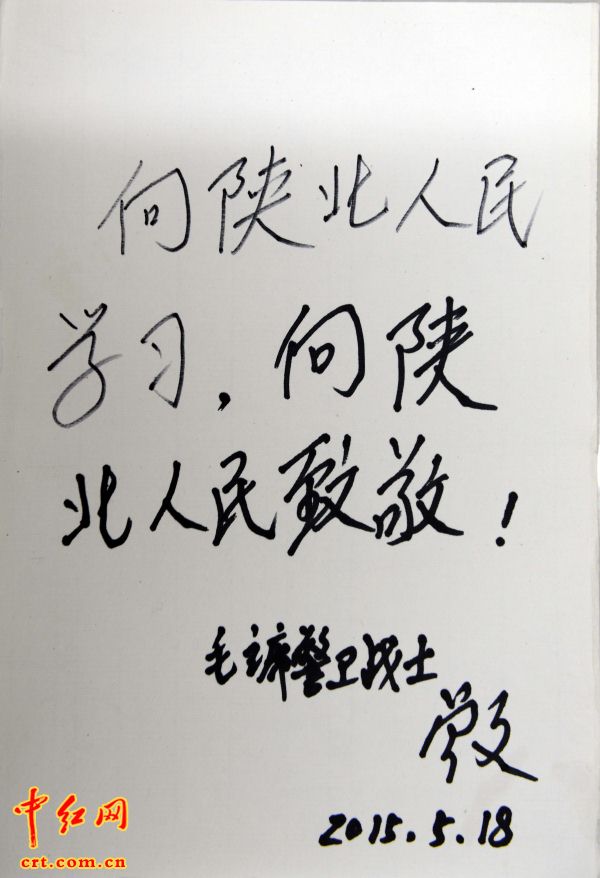 向陕北人民
学习，向陕
北人民致敬！
毛主席警卫战士
曾文
2015.5.18
中红网
crt.com.cn